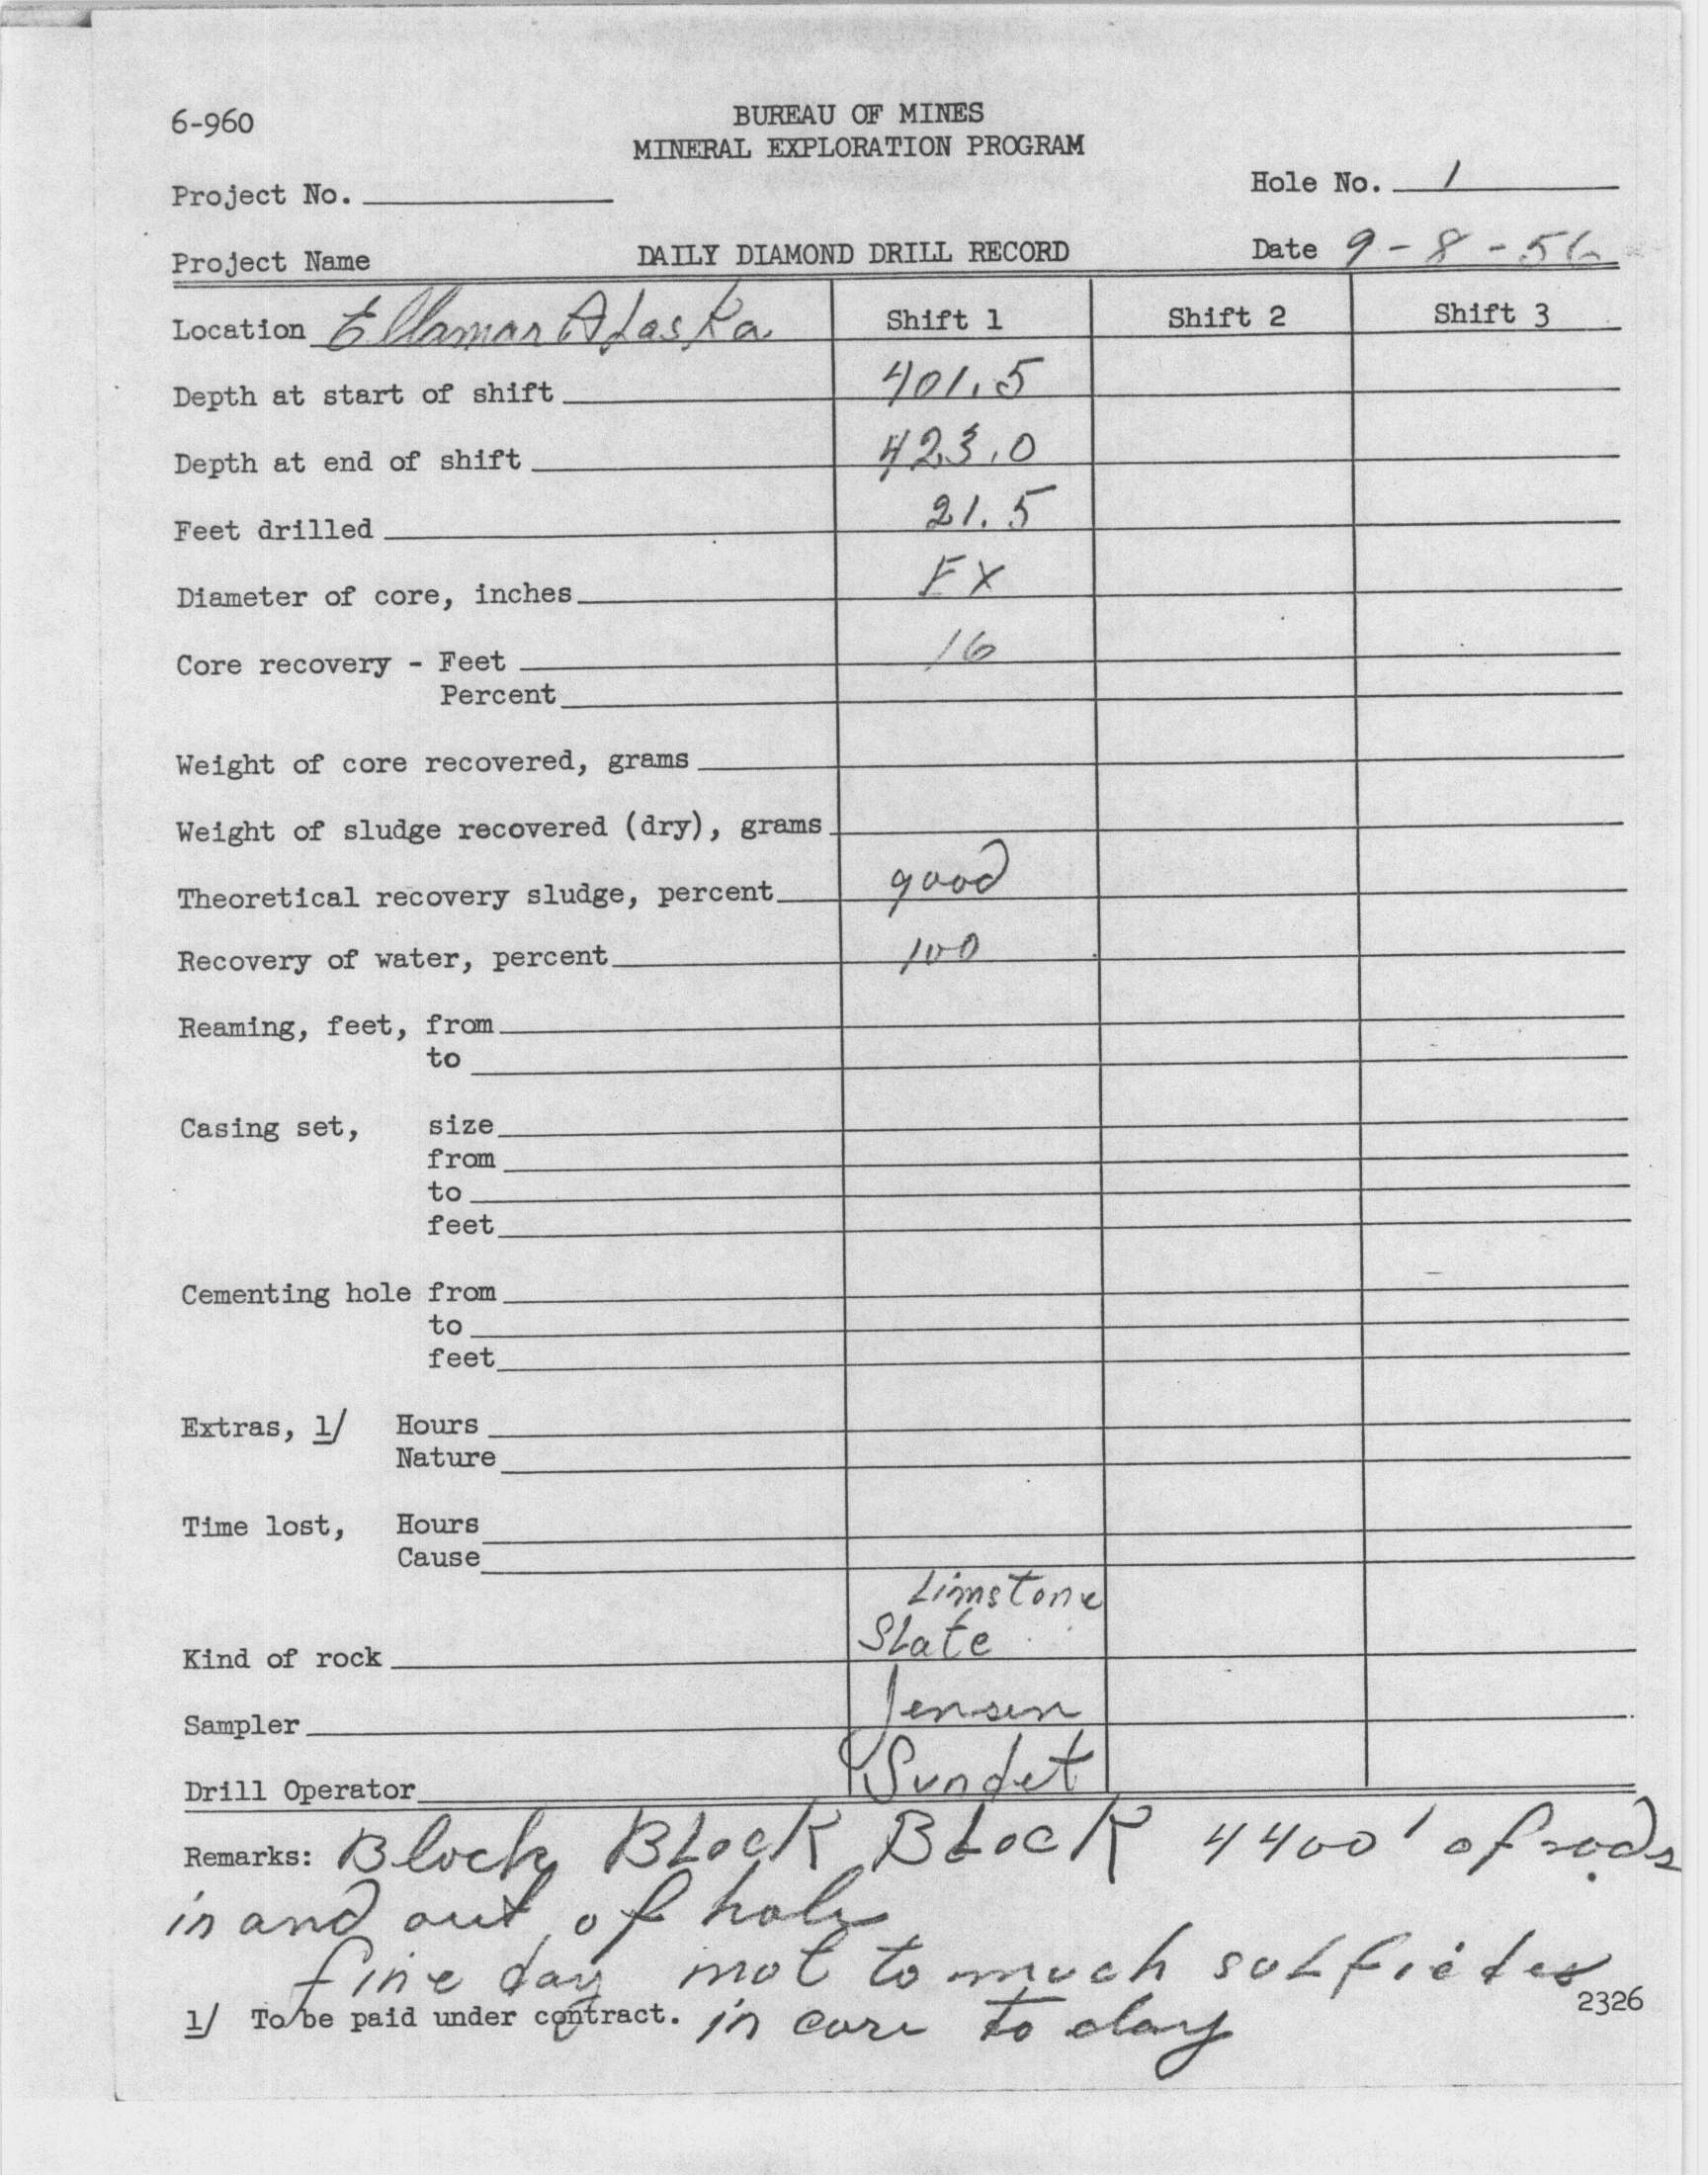 6-960
BUREAU OF MINES
MINERAL EXPLORATION PROGRAM
Project No.
Hole No. 1
Project Name
DAILY DIAMOND DRILL RECORD
Date 9-8-56
Location Ellamar ALaska Shift 1 Shift 2 Shift 3
Depth at start of shift 401.5
Depth at end of shift 423.0
Feet drilled 21.5
Diameter of core, inches EX
Core recovery - Feet 16
Percent
Weight of core recovered, grams
Weight of sludge recovered (dry), grams
Theoretical recovery sludge, percent good
Recovery of water, percent 100
Reaming, feet, from
to
Casing set, size
from
to
feet
Cementing hole from
to
feet
Extras, 1/ Hours
Nature
Time lost, Hours
Cause
Limstone
Kind of rock SLate
Sampler Jensen
Drill Operator Sundet
Remarks: Block BLocK BLocK 4400' of rods
in and out of hole
fine day not to much suLfides
2326
1/ To be paid under contract. in core to day